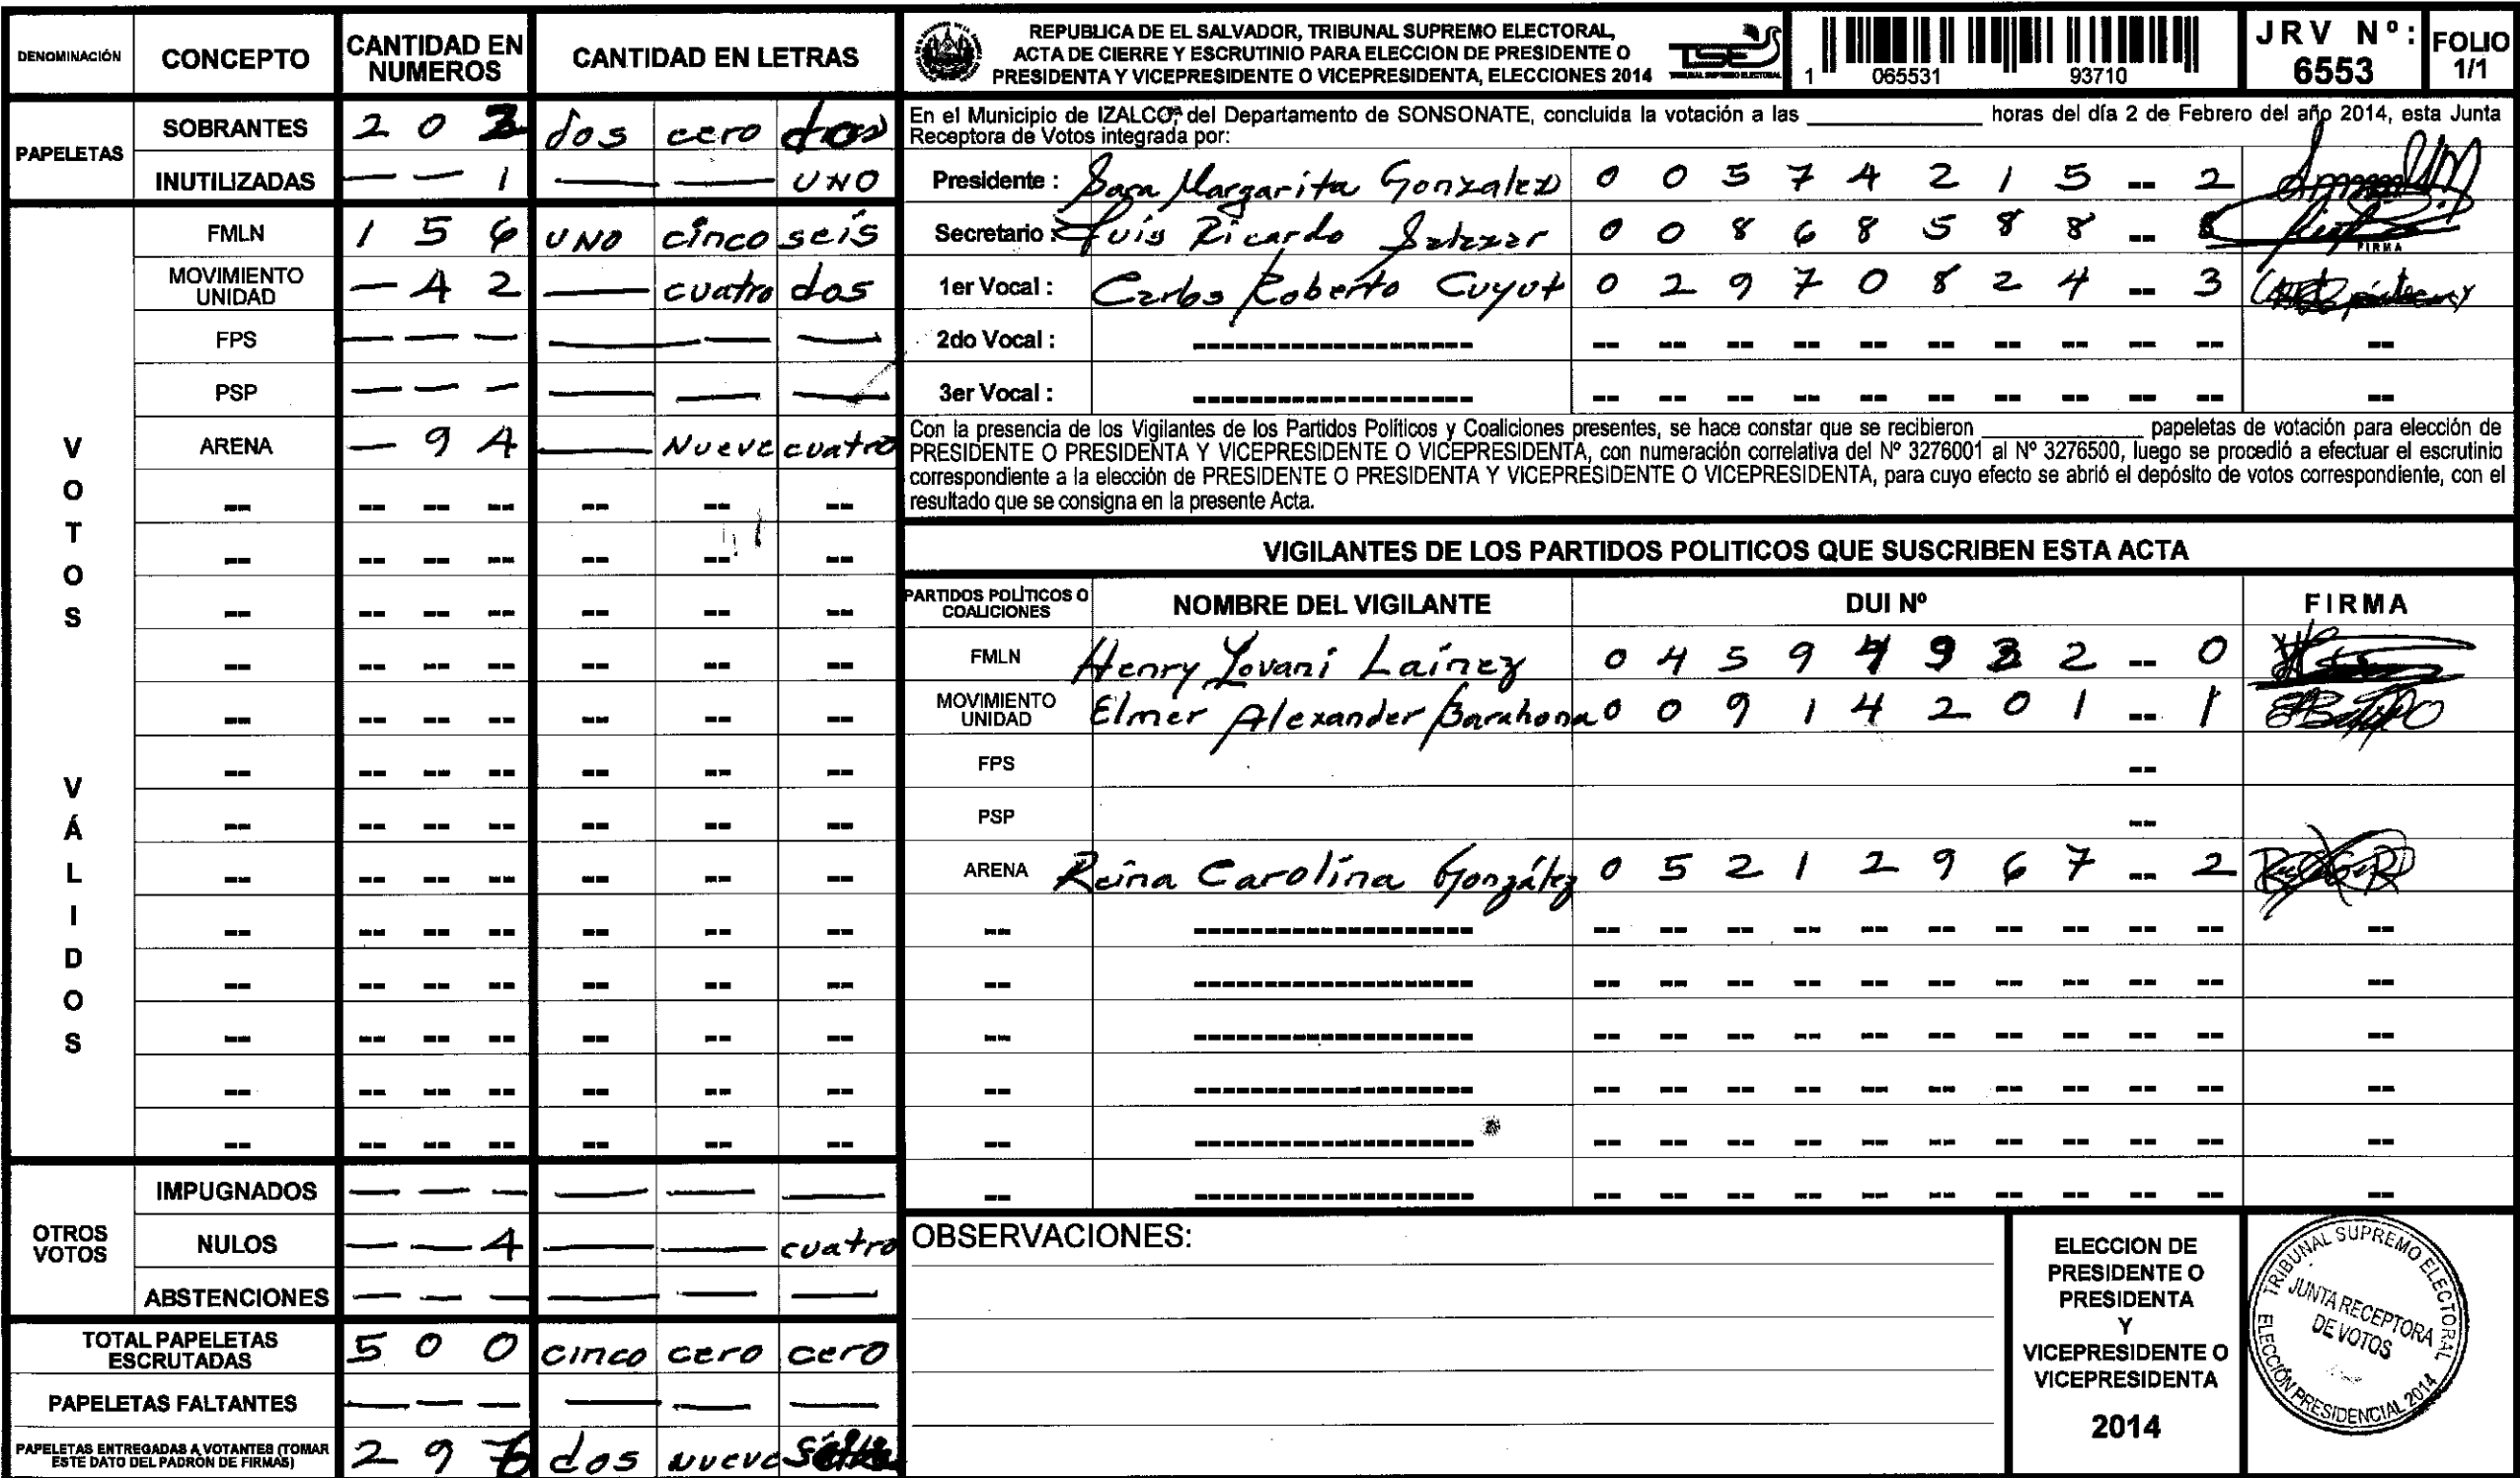 DENOMINACIÓN CONCEPTO CANTIDAD EN NUMEROS CANTIDAD EN LETRAS
PAPELETAS
SOBRANTES 2 0 dos cero dos
INUTILIZADAS — — 1 — — UNO
VOTOS VÁLIDOS
FMLN 1 5 6 UNO cinco seis
MOVIMIENTO UNIDAD — 4 2 — cuatro dos
FPS — — — — — —
PSP — — — — — —
ARENA — 9 4 — Nueve cuatro
-- -- -- -- -- -- --
-- -- -- -- -- -- --
-- -- -- -- -- -- --
-- -- -- -- -- -- --
-- -- -- -- -- -- --
-- -- -- -- -- -- --
-- -- -- -- -- -- --
-- -- -- -- -- -- --
-- -- -- -- -- -- --
-- -- -- -- -- -- --
-- -- -- -- -- -- --
-- -- -- -- -- -- --
-- -- -- -- -- -- --
OTROS VOTOS
IMPUGNADOS — — — — — —
NULOS — — 4 — — cuatro
ABSTENCIONES — — — — — —
TOTAL PAPELETAS ESCRUTADAS 5 0 0 cinco cero cero
PAPELETAS FALTANTES — — — — — —
PAPELETAS ENTREGADAS A VOTANTES (TOMAR ESTE DATO DEL PADRÓN DE FIRMAS) 2 9 dos nueve
REPUBLICA DE EL SALVADOR, TRIBUNAL SUPREMO ELECTORAL,
ACTA DE CIERRE Y ESCRUTINIO PARA ELECCION DE PRESIDENTE O
PRESIDENTA Y VICEPRESIDENTE O VICEPRESIDENTA, ELECCIONES 2014
TSE
TRIBUNAL SUPREMO ELECTORAL
1 065531 93710
JRV Nº: 6553
FOLIO 1/1
En el Municipio de IZALCO, del Departamento de SONSONATE, concluida la votación a las ______ horas del día 2 de Febrero del año 2014, esta Junta
Receptora de Votos integrada por:
Presidente : Sara Margarita Gonzalez 0 0 5 7 4 2 1 5 -- 2
Secretario : Luis Ricardo Salazar 0 0 8 6 8 5 8 8 --
FIRMA
1er Vocal : Carlos Roberto Cuyut 0 2 9 7 0 8 2 4 -- 3
2do Vocal : -------------------- -- -- -- -- -- -- -- -- -- -- --
3er Vocal : -------------------- -- -- -- -- -- -- -- -- -- -- --
Con la presencia de los Vigilantes de los Partidos Políticos y Coaliciones presentes, se hace constar que se recibieron ______ papeletas de votación para elección de
PRESIDENTE O PRESIDENTA Y VICEPRESIDENTE O VICEPRESIDENTA, con numeración correlativa del Nº 3276001 al Nº 3276500, luego se procedió a efectuar el escrutinio
correspondiente a la elección de PRESIDENTE O PRESIDENTA Y VICEPRESIDENTE O VICEPRESIDENTA, para cuyo efecto se abrió el depósito de votos correspondiente, con el
resultado que se consigna en la presente Acta.
VIGILANTES DE LOS PARTIDOS POLITICOS QUE SUSCRIBEN ESTA ACTA
PARTIDOS POLÍTICOS O COALICIONES NOMBRE DEL VIGILANTE DUI Nº FIRMA
FMLN Henry Yovani Laínez 0 4 5 9 4 9 3 2 -- 0
MOVIMIENTO UNIDAD Elmer Alexander Barahona 0 0 9 1 4 2 0 1 -- 1
FPS --
PSP --
ARENA Reina Carolina González 0 5 2 1 2 9 6 7 -- 2
-- -------------------- -- -- -- -- -- -- -- -- -- -- --
-- -------------------- -- -- -- -- -- -- -- -- -- -- --
-- -------------------- -- -- -- -- -- -- -- -- -- -- --
-- -------------------- -- -- -- -- -- -- -- -- -- -- --
-- -------------------- -- -- -- -- -- -- -- -- -- -- --
-- -------------------- -- -- -- -- -- -- -- -- -- -- --
OBSERVACIONES:
ELECCION DE
PRESIDENTE O
PRESIDENTA
Y
VICEPRESIDENTE O
VICEPRESIDENTA
2014
TRIBUNAL SUPREMO ELECTORAL
JUNTA RECEPTORA
DE VOTOS
ELECCIÓN PRESIDENCIAL 2014